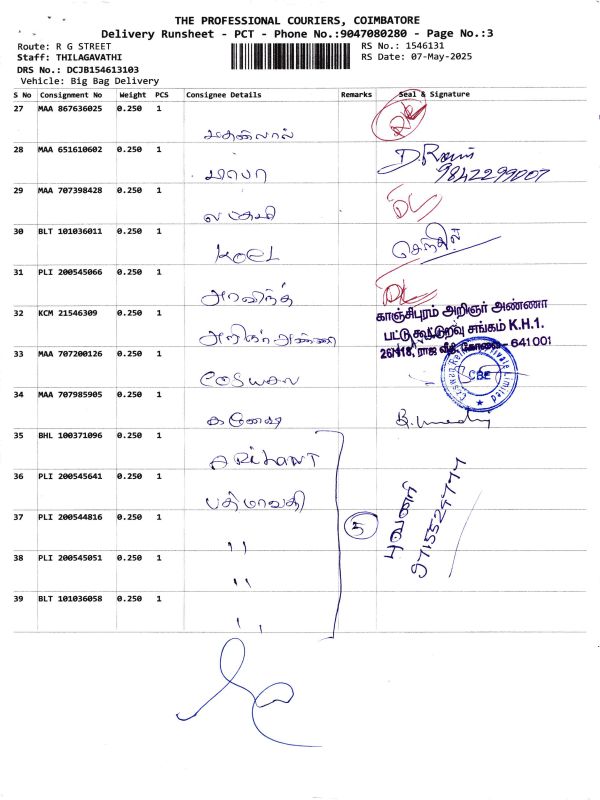 THE PROFESSIONAL COURIERS, COIMBATORE
Delivery Runsheet - PCT - Phone No.:9047080280 - Page No.:3
Route: R G STREET
RS No.: 1546131
Staff: THILAGAVATHI
RS Date: 07-May-2025
DRS No.: DCJB154613103
Vehicle: Big Bag Delivery
S No Consignment No Weight PCS Consignee Details Remarks Seal & Signature
27 MAA 867636025 0.250 1
28 MAA 651610602 0.250 1
9842299007
29 MAA 707398428 0.250 1
DL
30 BLT 101036011 0.250 1
KOEL
செந்தில்
31 PLI 200545066 0.250 1
அரவிந்த்
DL
32 KCM 21546309 0.250 1
காஞ்சிபுரம் அறிஞர் அண்ணா
பட்டு கூட்டுறவு சங்கம் K.H.1.
26/118, ராஜ வீதி, கோவை - 641 001
அறிஞர் அண்ணா
33 MAA 707200126 0.250 1
CBE
Private Limited
34 MAA 707985905 0.250 1
கணேஷ்
35 BHL 100371096 0.250 1
ARIHANT
36 PLI 200545641 0.250 1
பத்மாவதி
37 PLI 200544816 0.250 1
"
5
புவனா
38 PLI 200545051 0.250 1
"
39 BLT 101036058 0.250 1
"